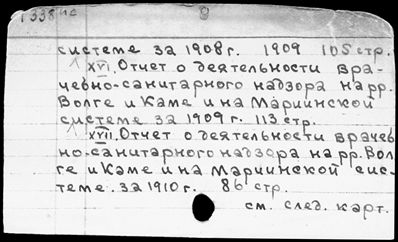 системе за 1908 г. 1909 105 стр.
XVI. Отчет о деятельности вра-
чебно-санитарного надзора на рр.
Волге и Каме и на Мариинской
системе за 1909 г. 113 стр.
XVII. Отчет о деятельности врачеб
но-санитарного надзора на рр. Вол
ге и Каме и на Мариинской сис-
теме за 1910 г. 86 стр.
см. след. карт.